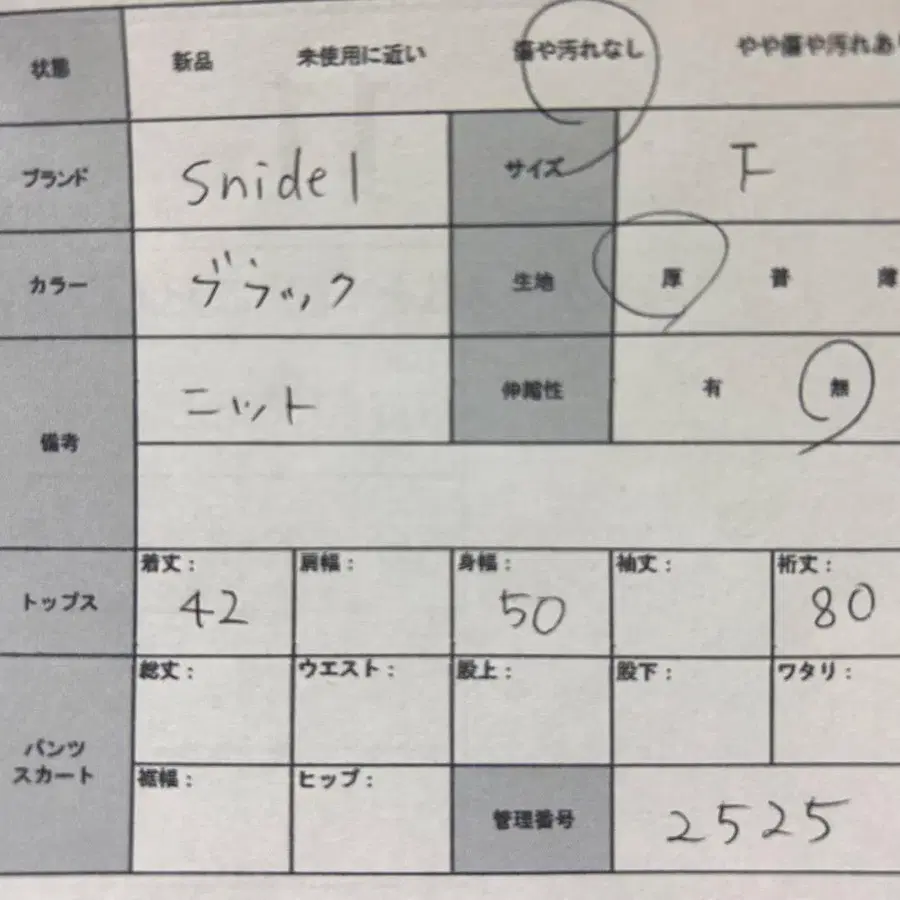 状態 新品 未使用に近い 傷や汚れなし やや傷や汚れあり
ブランド snidel サイズ F
カラー ブラック 生地 厚 普 薄
備考 ニット 伸縮性 有 無
トップス 着丈: 42 肩幅: 身幅: 50 袖丈: 裄丈: 80
パンツ スカート 総丈: ウエスト: 股上: 股下: ワタリ:
裾幅: ヒップ: 管理番号 2525